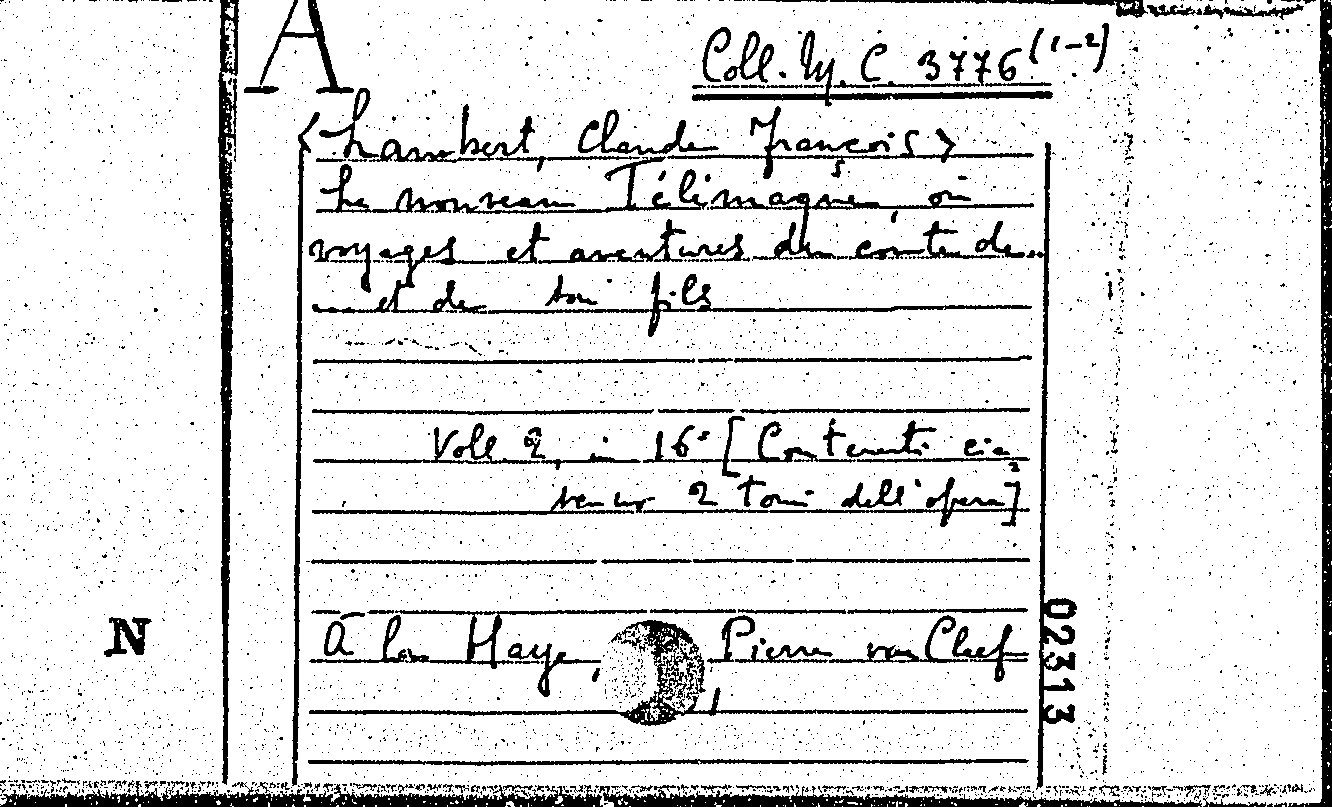 A
Coll. Un. C. 3776 (1-2)
<Lambert, Claude François>
Le nouveau Télémaque, ou
voyages et aventures du comte de...
... et de son fils
Voll. 2, in 16° [Contenuti cia
scuno 2 tomi dell'opera]
N
À La Haye, Pierre van Cleef,
022313